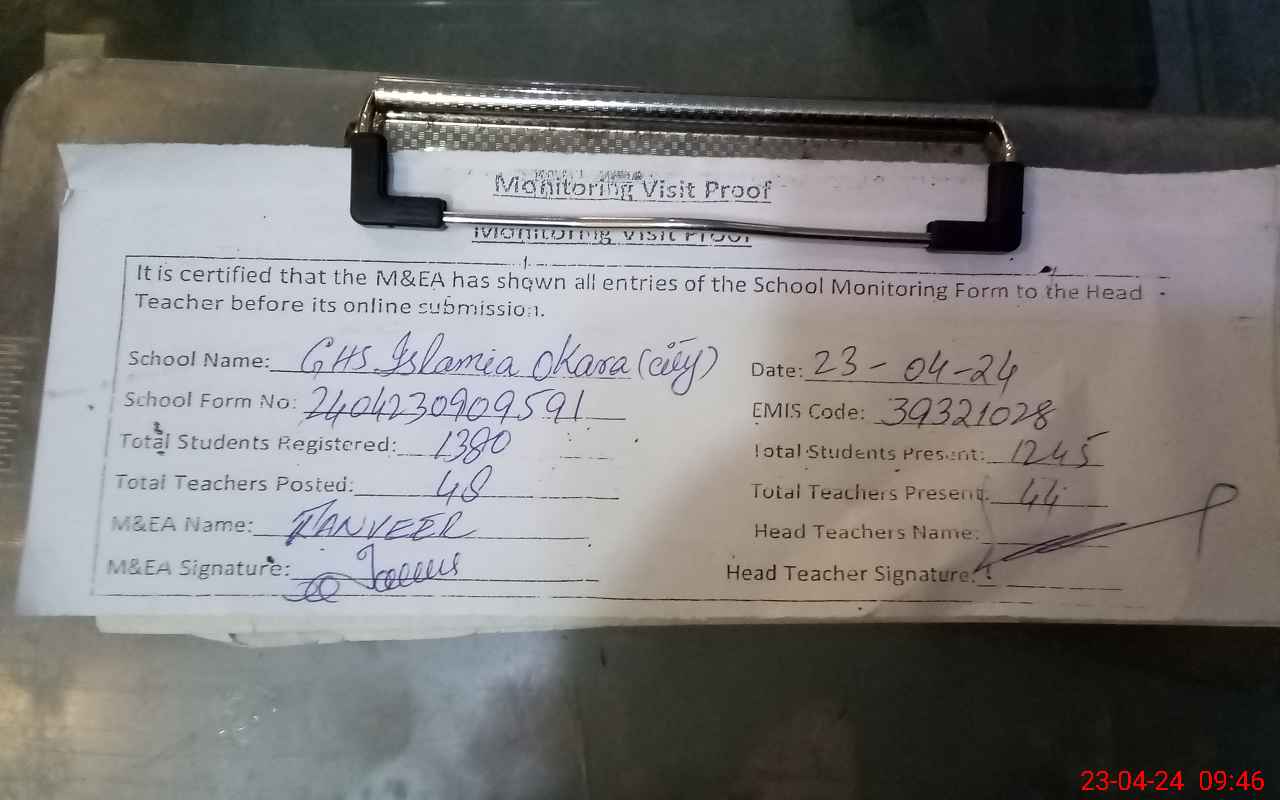 Monitoring Visit Proof
Monitoring Visit Proof
It is certified that the M&EA has shown all entries of the School Monitoring Form to the Head
Teacher before its online submission.
School Name: GHS Islamia Okara (city) Date: 23-04-24
School Form No: 2404230909591 EMIS Code: 39321028
Total Students Registered: 1380 Total Students Present: 1245
Total Teachers Posted: 48 Total Teachers Present: 44
M&EA Name: TANVEER Head Teachers Name:
M&EA Signature: Head Teacher Signature:
23-04-24 09:46